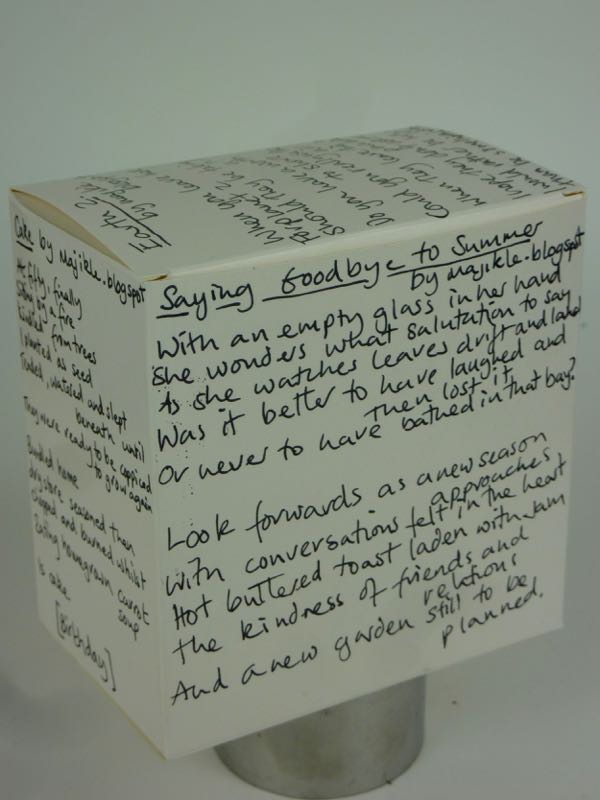 Saying Goodbye to Summer
by majikle.blogspot
With an empty glass in her hand
She wonders what salutation to say
As she watches leaves drift and land
Was it better to have laughed and
then lost it
Or never to have bathed in that bay?
Look forwards as a new season
approaches
With conversations felt in the heart
Hot buttered toast laden with jam
The kindness of friends and
relations
And a new garden still to be
planned.
Cake by majikle.blogspot
At fifty, finally
Sitting by a fire
Kindled from trees
I planted as seed
Tended, watered and slept
beneath until
They were ready to be coppiced
to grow again
Bundled home
dry store, seasoned then
chopped and burned whilst
Eating homegrown carrot
soup
Is cake
[Birthday]
Earth 2
by majikle
blogspot
When you
For planet 2
Should they be
Do you
Could you
When they